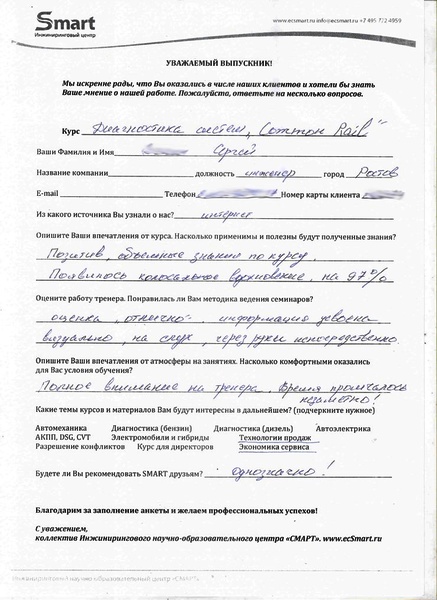 Smart
Инжиниринговый центр
www.ecsmart.ru info@ecsmart.ru +7 495 722 4959
УВАЖАЕМЫЙ ВЫПУСКНИК!
Мы искренне рады, что Вы оказались в числе наших клиентов и хотели бы знать
Ваше мнение о нашей работе. Пожалуйста, ответьте на несколько вопросов.
Курс Диагностика систем „Common Rail"
Ваши Фамилия и Имя Сергей
Название компании должность инженер город Ростов
E-mail Телефон Номер карты клиента
Из какого источника Вы узнали о нас? интернет
Опишите Ваши впечатления от курса. Насколько применимы и полезны будут полученные знания?
Позитив, объемные знания по курсу.
Появилось колосальное вдохновение, на 97%
Оцените работу тренера. Понравилась ли Вам методика ведения семинаров?
оценка, отлично - информация усвоена
визуально, на слух, через руки непосредственно.
Опишите Ваши впечатления от атмосферы на занятиях. Насколько комфортными оказались
для Вас условия обучения?
Полное внимание на тренера. Время промчалось
незаметно!
Какие темы курсов и материалов Вам будут интересны в дальнейшем? (подчеркните нужное)
Автомеханика Диагностика (бензин) Диагностика (дизель) Автоэлектрика
АКПП, DSG, CVT Электромобили и гибриды Технологии продаж
Разрешение конфликтов Курс для директоров Экономика сервиса
Будете ли Вы рекомендовать SMART друзьям? однозначно!
Благодарим за заполнение анкеты и желаем профессиональных успехов!
С уважением,
коллектив Инжинирингового научно-образовательного центра «СМАРТ». www.ecSmart.ru
Инжиниринговый научно-образовательный центр «СМАРТ»